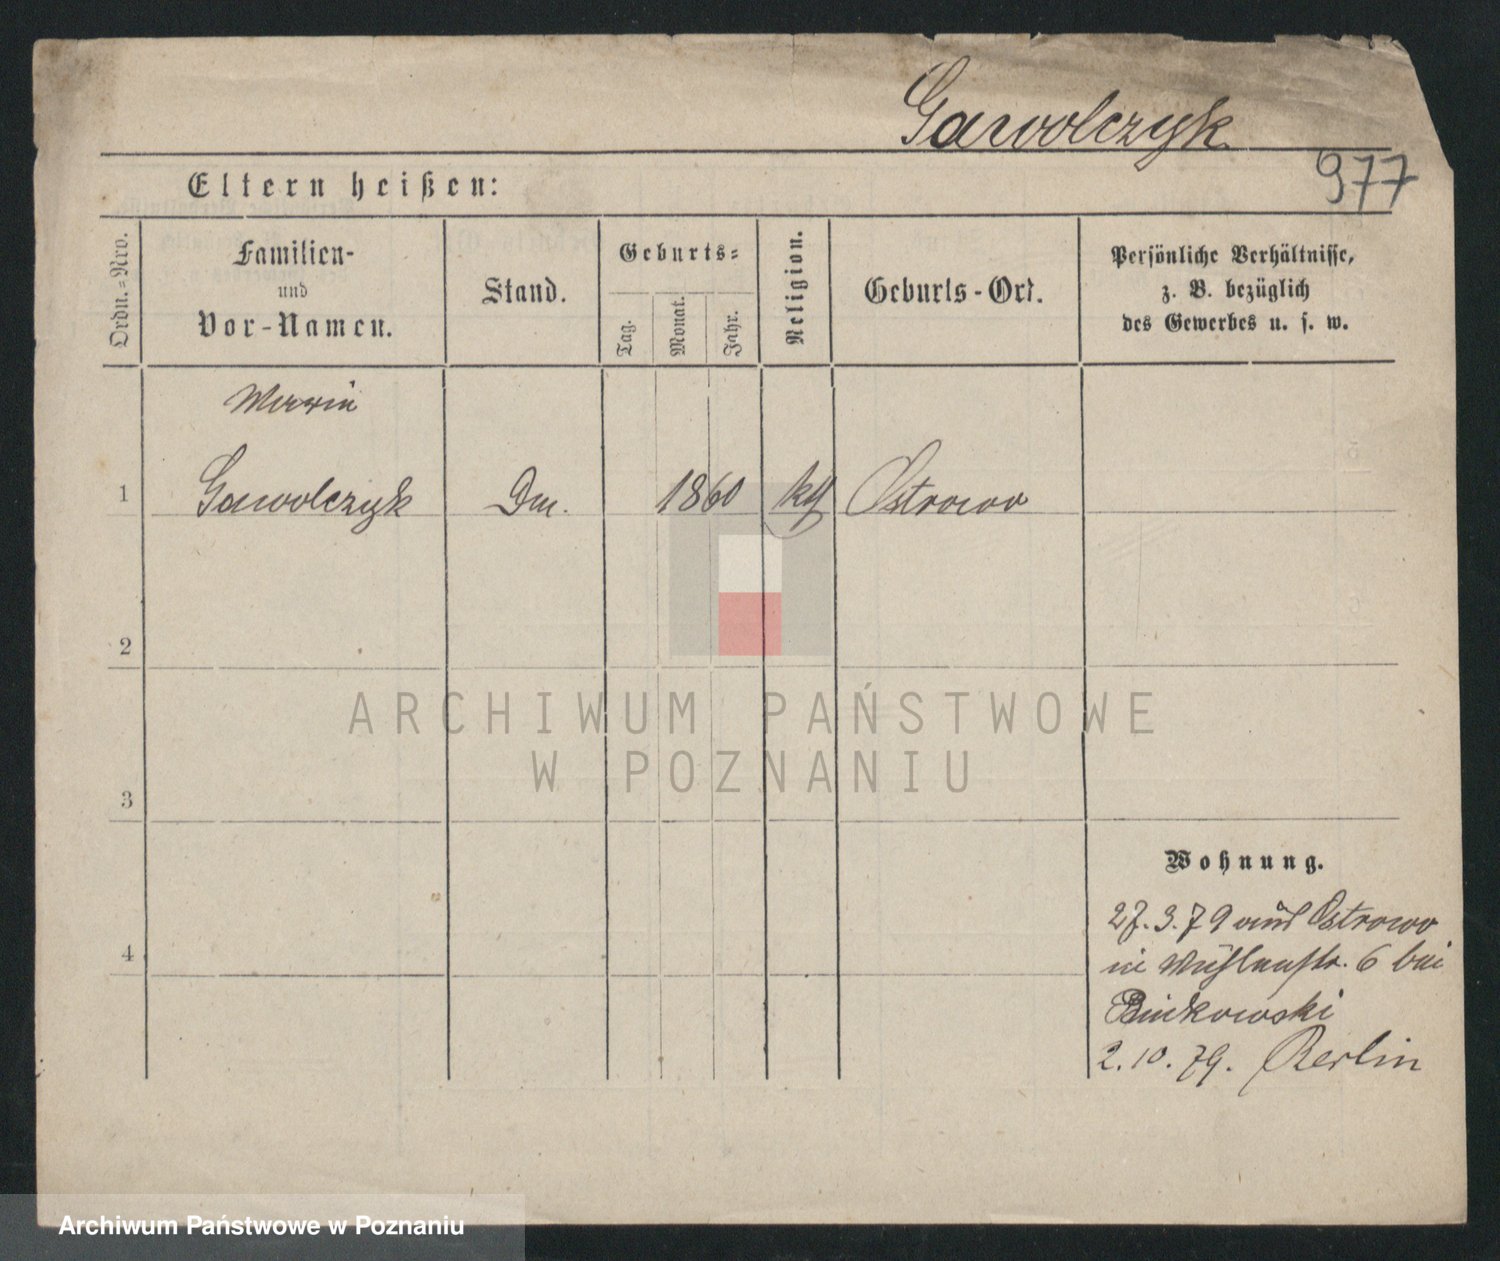 Gawolczyk
977
Eltern heißen:
Ordn.-Nro.
Familien-
und
Vor-Namen.
Stand.
Geburts-
Tag.
Monat.
Jahr.
Religion.
Geburts-Ort.
Persönliche Verhältnisse,
z. B. bezüglich
des Gewerbes u. s. w.
Marie
1 Gawolczyk Dm. 1860 kth Ostrowo
2
3
4
Wohnung.
27.3.79 aus Ostrowo
in Mühlenstr. 6 bei
Binkowski
2.10.79. Berlin
ARCHIWUM PAŃSTWOWE
W POZNANIU
Archiwum Państwowe w Poznaniu